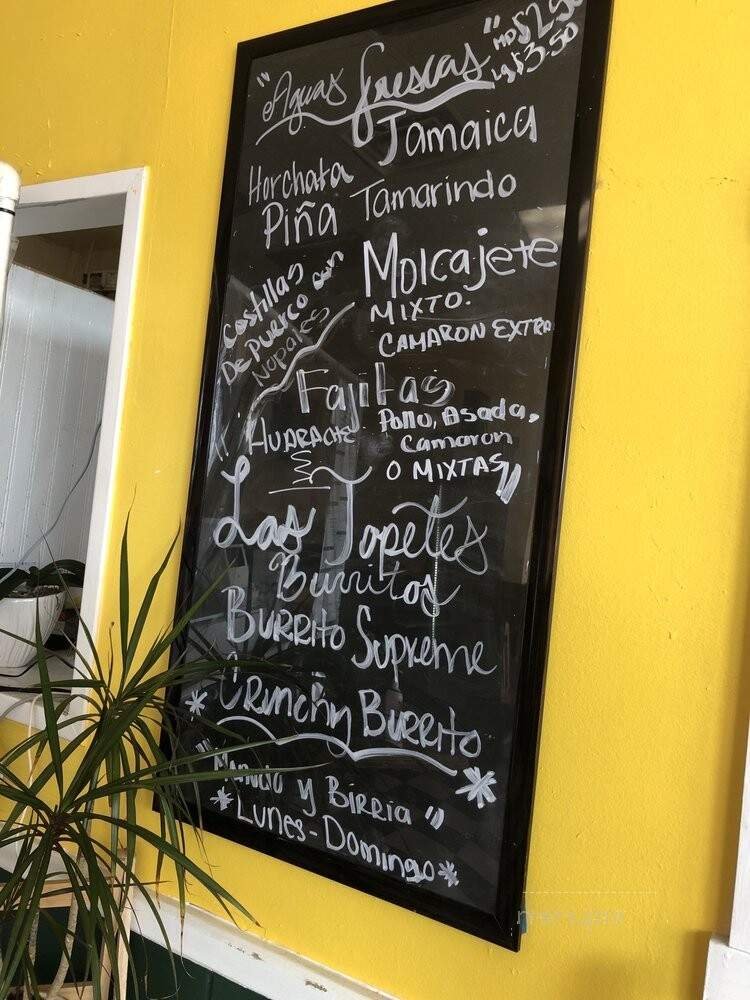 "Aguas frescas"
MD $2.50
LG $3.50
Jamaica
Horchata
Tamarindo
Piña
Costillas
De puerco con
Nopales
Molcajete
MIXTO.
CAMARON EXTRA
Fajitas
Pollo, Asada,
Camaron
O MIXTAS"
" HUARACHE
Las Topetes
Burritos
BURRITO Supreme
* CRUNCHY BURRITO *
"Menudo y BIRRIA"
*LUNES-DOMINGO*